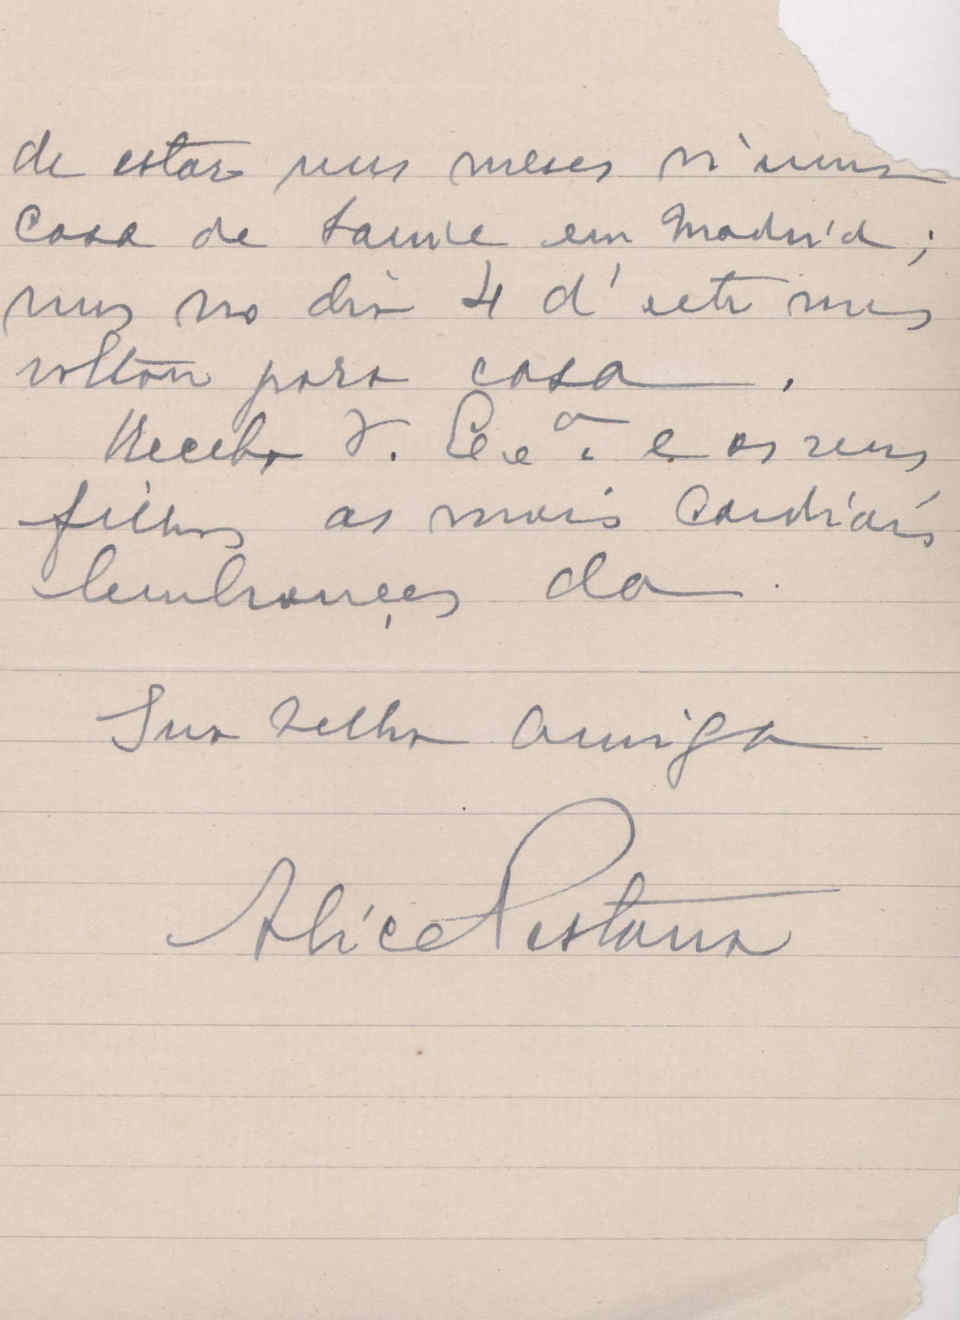 de estar uns meses n'uma
Casa de Saude em Madrid;
mas no dia 4 d'este mes
voltou para casa.
Receba V. Ex.ª e os seus
filhos as mais Cordiais
lembranças da
Sua velha amiga
Alice Pestana